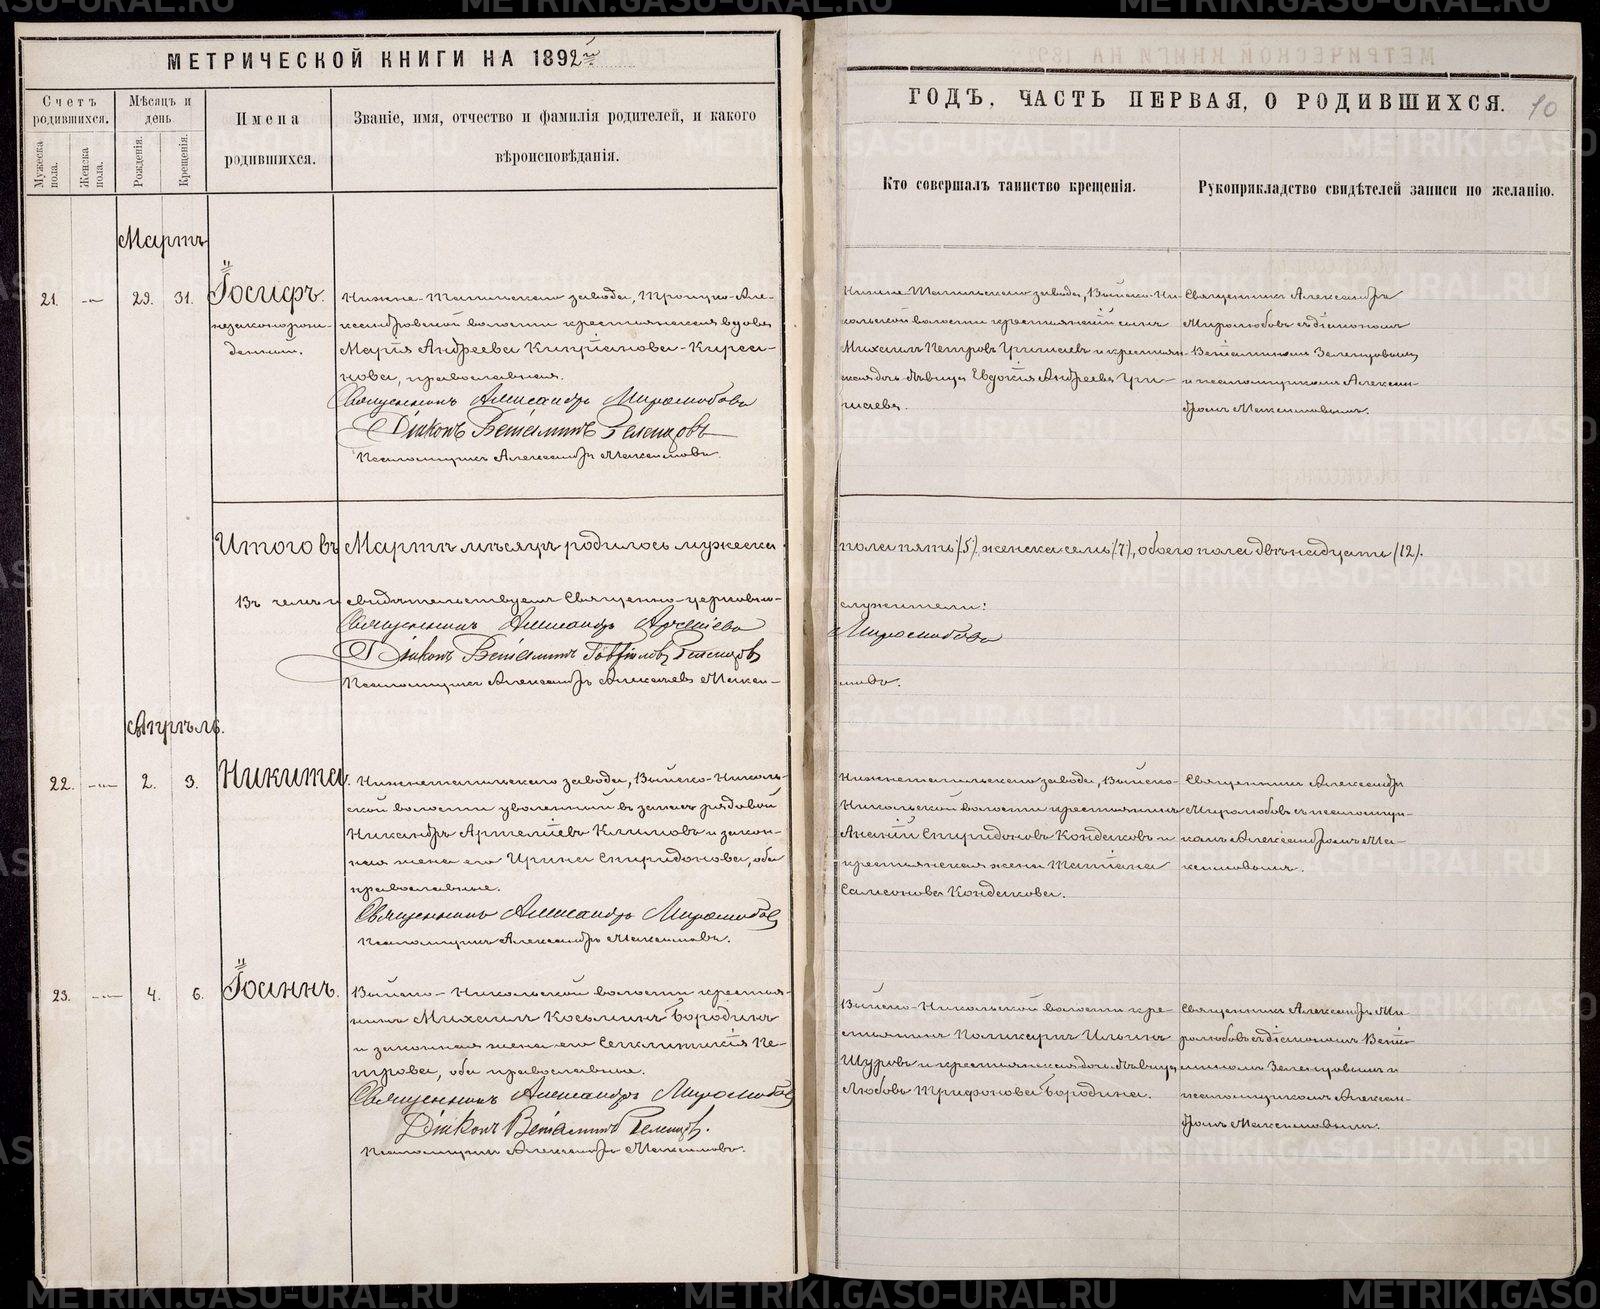 МЕТРИЧЕСКОЙ КНИГИ НА 1892й
Счетъ родившихся.
Мужеска пола.
Женска пола.
Мѣсяцъ и день
Рожденія.
Крещенія.
Имена
родившихся.
Званіе, имя, отчество и фамилія родителей, и какого
вѣроисповѣданія.
Мартъ
21. — 29. 31. Іосифъ.
незаконорож-
денный.
Нижне-Тагильскаго завода, Троицко-Але-
ксандровской волости крестьянская вдова
Марія Андреева Кипріанова-Кирса-
нова, православная.
Священникъ Александръ Миролюбовъ
Діаконъ Веніаминъ Зеленцовъ
Псаломщикъ Александръ Максимовъ.
Итого въ Мартѣ мѣсяцѣ родилось мужеска
Въ чемъ и свидѣтельствуемъ Священно-церковно-
Священникъ Александръ
Діаконъ Веніаминъ Зеленцовъ
Псаломщикъ Александръ Алексѣевъ Макси-
Апрѣль.
22. — 2. 3. Никита.
Нижнетагильскаго завода, Выйско-Николь-
ской волости уволенный въ запасъ рядовой
Никандръ Артеміевъ Климовъ и закон-
ная жена его Ирина Спиридонова, оба
православные.
Священникъ Александръ Миролюбовъ
Псаломщикъ Александръ Максимовъ.
23. — 4. 6. Іоаннъ.
Выйско-Никольской волости крестья-
нинъ Михаилъ Косьминъ Бородинъ
и законная жена его Сегклитикія Пе-
трова, оба православные.
Священникъ Александръ Миролюбовъ
Діаконъ Веніаминъ Зеленцовъ.
Псаломщикъ Александръ Максимовъ.
ГОДЪ, ЧАСТЬ ПЕРВАЯ, О РОДИВШИХСЯ. 10
Кто совершалъ таинство крещенія.
Рукоприкладство свидѣтелей записи по желанію.
Нижне-Тагильскаго завода, Выйско-Ни-
кольской волости крестьянскій сынъ
Михаилъ Петровъ и крестьян-
ская дочь-дѣвица Евдокія Андреева
Священникъ Александръ
Миролюбовъ съ діакономъ
Веніаминомъ Зеленцовымъ
и псаломщикомъ Алексан-
дромъ Максимовымъ.
пола пять (5), женска семь (7), обоего пола двѣнадцать (12).
служители:
Миролюбовъ
мовъ.
Нижнетагильскаго завода, Выйско-
Никольской волости крестьянинъ
Ананій Спиридоновъ Кондаковъ и
крестьянская жена Татіана
Самсонова Кондакова.
Священникъ Александръ
Миролюбовъ съ псаломщи-
комъ Александромъ Ма-
ксимовымъ.
Выйско-Никольской волости кре-
стьянинъ Поликарпъ Ильинъ
Щуровъ и крестьянская дочь-дѣвица
Любовь Трифонова Бородина.
Священникъ Александръ Ми-
ролюбовъ съ діакономъ Веніа-
миномъ Зеленцовымъ и
псаломщикомъ Алексан-
дромъ Максимовымъ.
METRIKI.GASO-URAL.RU